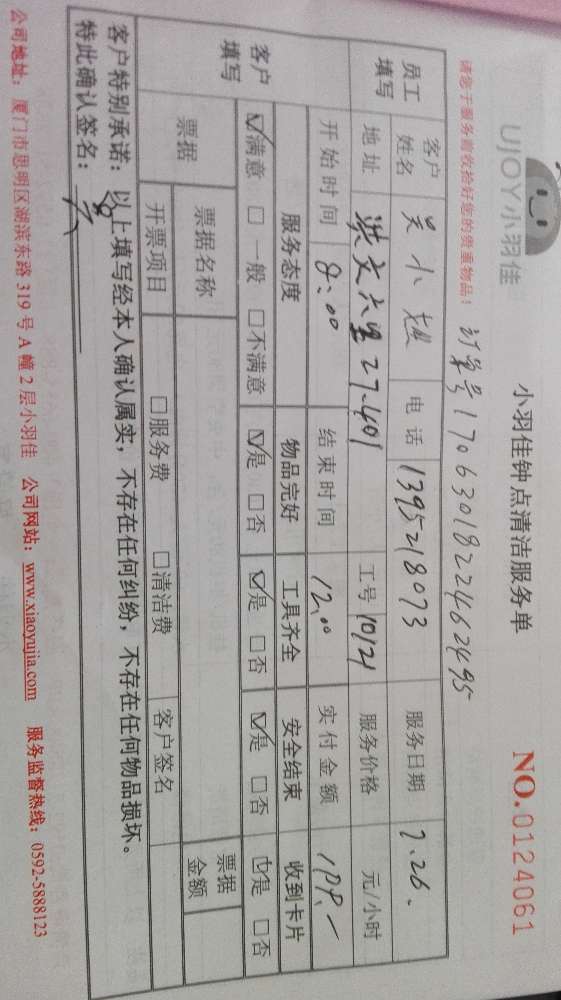 UJOY小羽佳
小羽佳钟点清洁服务单
NO.0124061
请您于服务前收拾好您的贵重物品！
订单号170630182246 2495
员工填写 客户姓名 吴小 电话 1395218073 服务日期 7.26.
地址 洪文六里27.401 工号 10121 服务价格 元/小时
开始时间 8:00 结束时间 12:00 实付金额
客户填写 服务态度 物品完好 工具齐全 安全结束 收到卡片
☑满意 □一般 □不满意 ☑是 □否 ☑是 □否 ☑是 □否 ☑是 □否
票据 票据名称 票据金额
开票项目 □服务费 □清洁费 客户签名
客户特别承诺：以上填写经本人确认属实，不存在任何纠纷，不存在任何物品损坏。
特此确认签名：
公司地址：厦门市思明区湖滨东路319号A幢2层小羽佳 公司网站：www.xiaoyujia.com 服务监督热线：0592-5888123